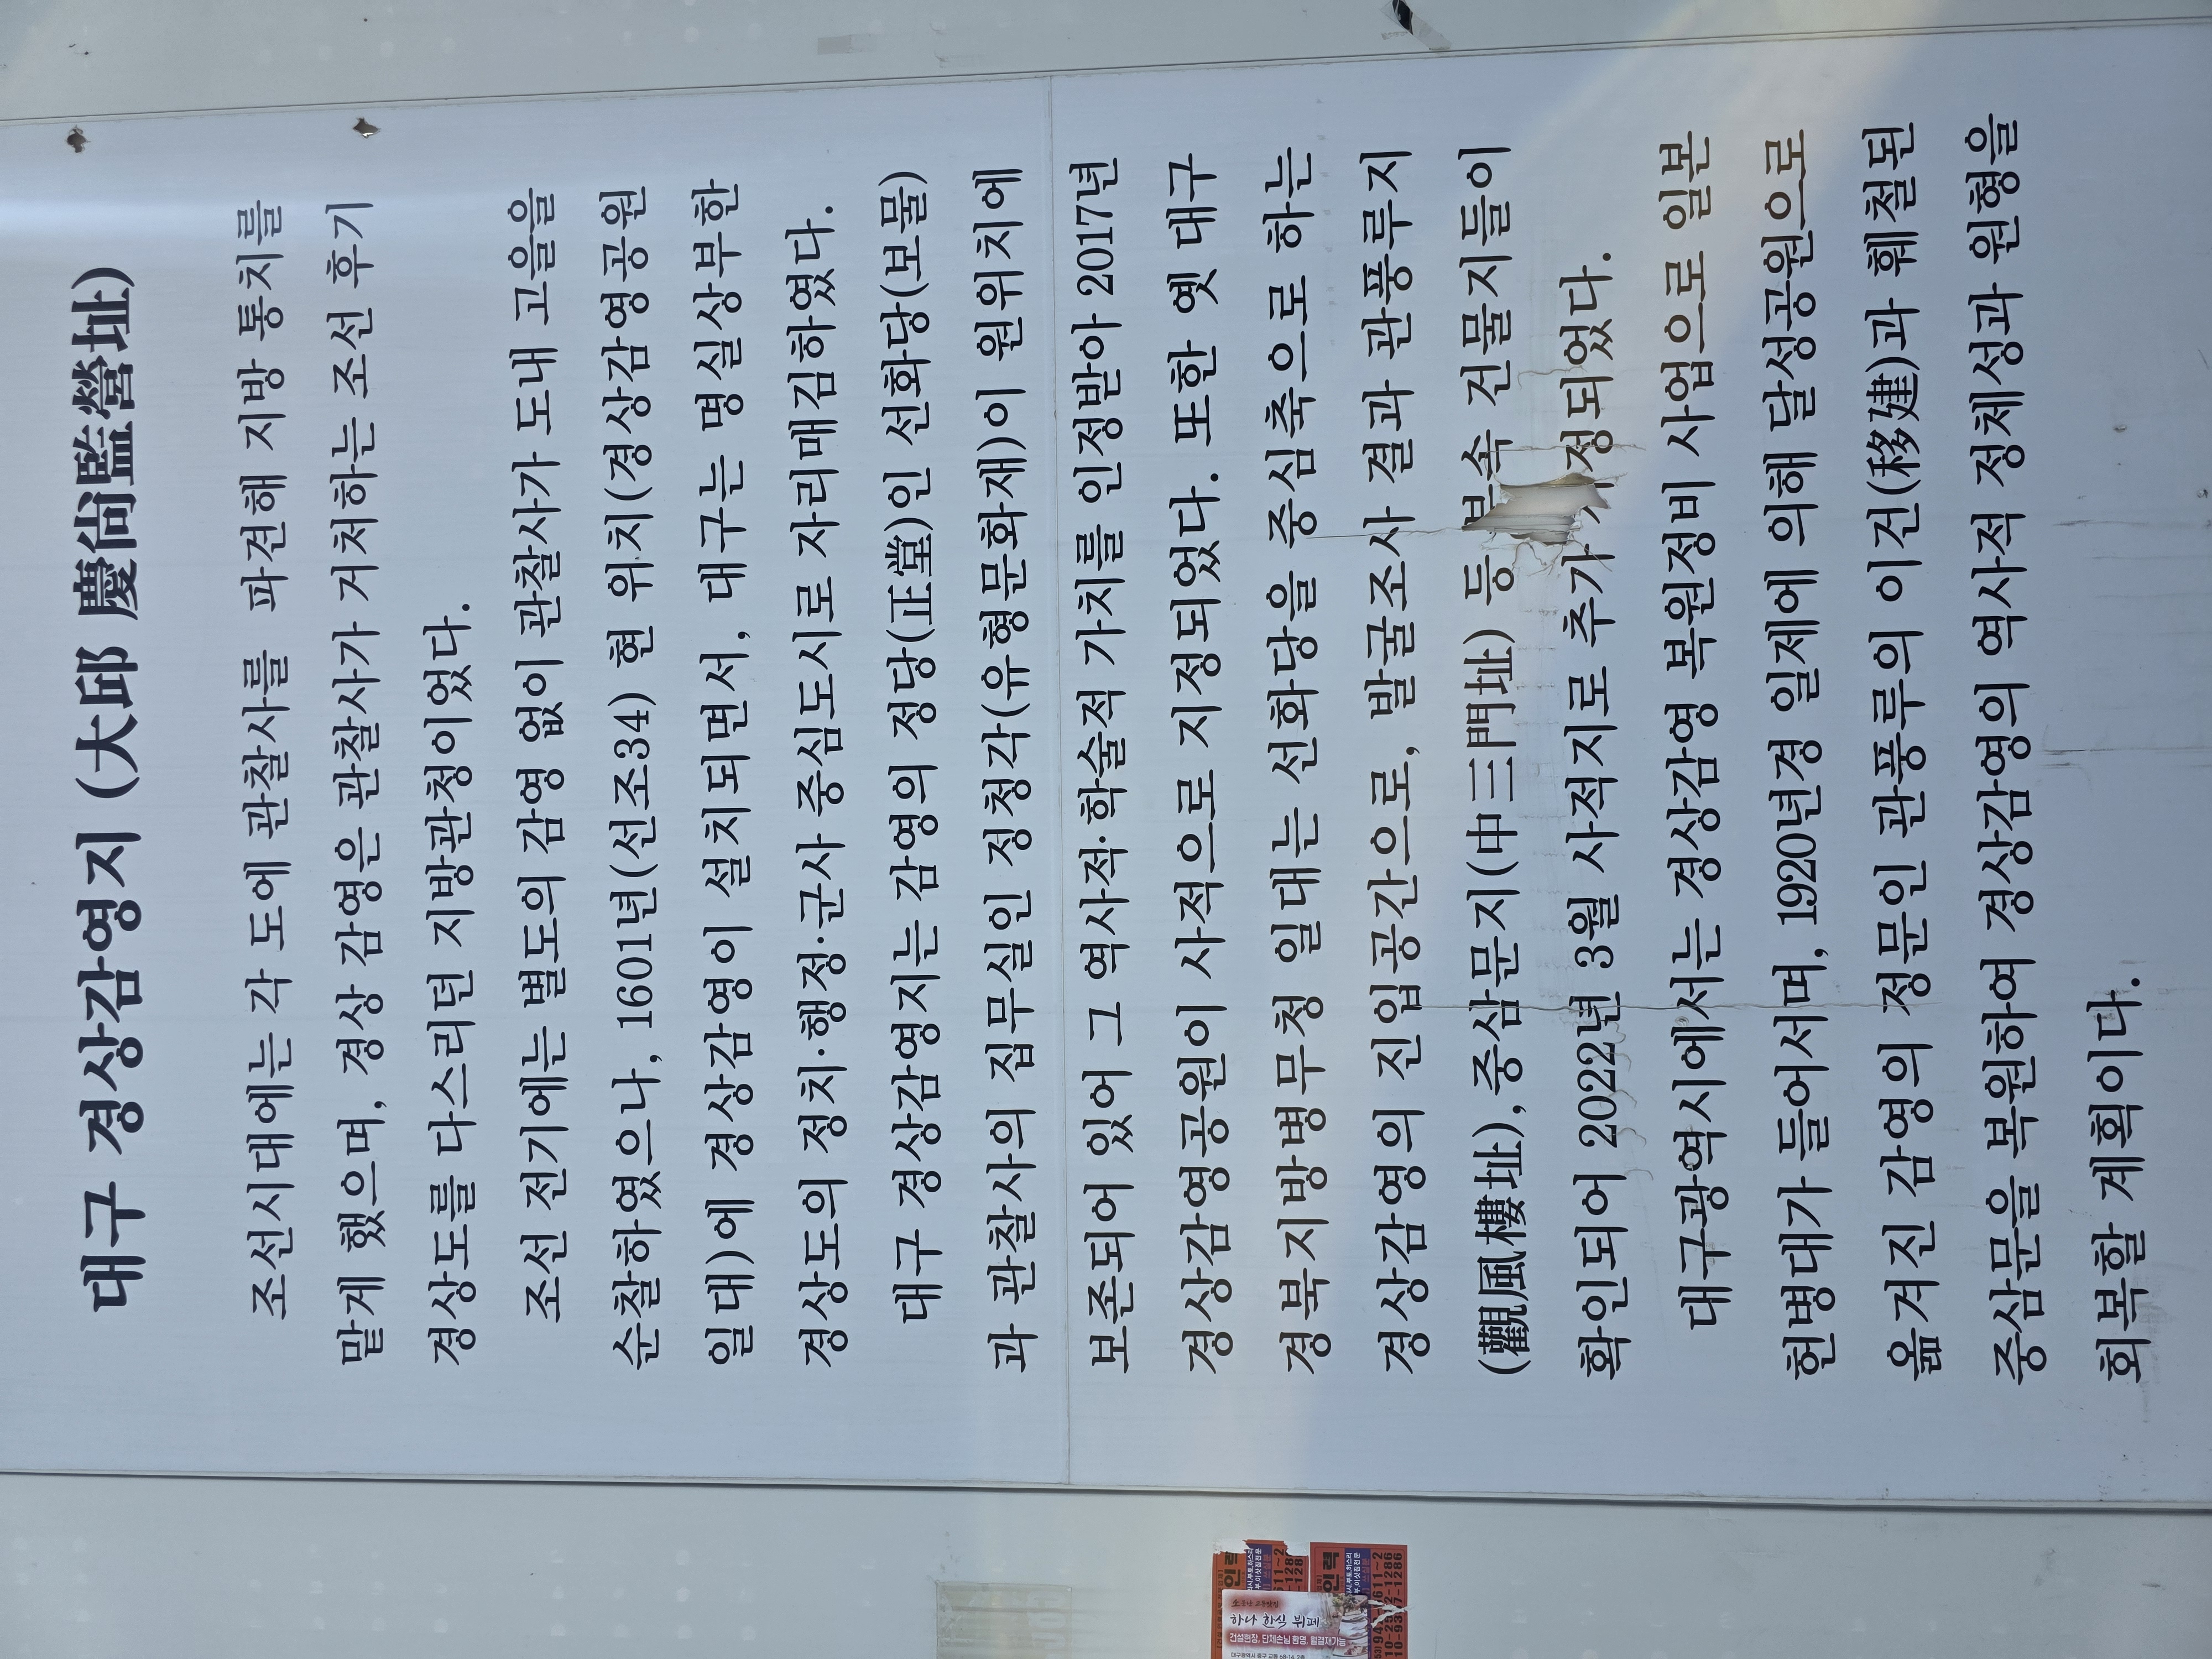 대구 경상감영지 (大邱 慶尙監營址)
조선시대에는 각 도에 관찰사를 파견해 지방 통치를
맡게 했으며, 경상 감영은 관찰사가 거처하는 조선 후기
경상도를 다스리던 지방관청이었다.
조선 전기에는 별도의 감영 없이 관찰사가 도내 고을을
순찰하였으나, 1601년(선조34) 현 위치(경상감영공원
일대)에 경상감영이 설치되면서, 대구는 명실상부한
경상도의 정치·행정·군사 중심도시로 자리매김하였다.
대구 경상감영지는 감영의 정당(正堂)인 선화당(보물)
과 관찰사의 집무실인 징청각(유형문화재)이 원위치에
보존되어 있어 그 역사적·학술적 가치를 인정받아 2017년
경상감영공원이 사적으로 지정되었다. 또한 옛 대구
경북지방병무청 일대는 선화당을 중심축으로 하는
경상감영의 진입공간으로, 발굴조사 결과 관풍루지
(觀風樓址), 중삼문지(中三門址) 등 부속 건물지들이
확인되어 2022년 3월 사적지로 추가 정되었다.
대구광역시에서는 경상감영 복원정비 사업으로 일본
헌병대가 들어서며, 1920년경 일제에 의해 달성공원으로
옮겨진 감영의 정문인 관풍루의 이건(移建)과 훼철된
중삼문을 복원하여 경상감영의 역사적 정체성과 원형을
회복할 계획이다.
하나 한식 뷔페
건설현장, 단체손님 환영, 월결제가능